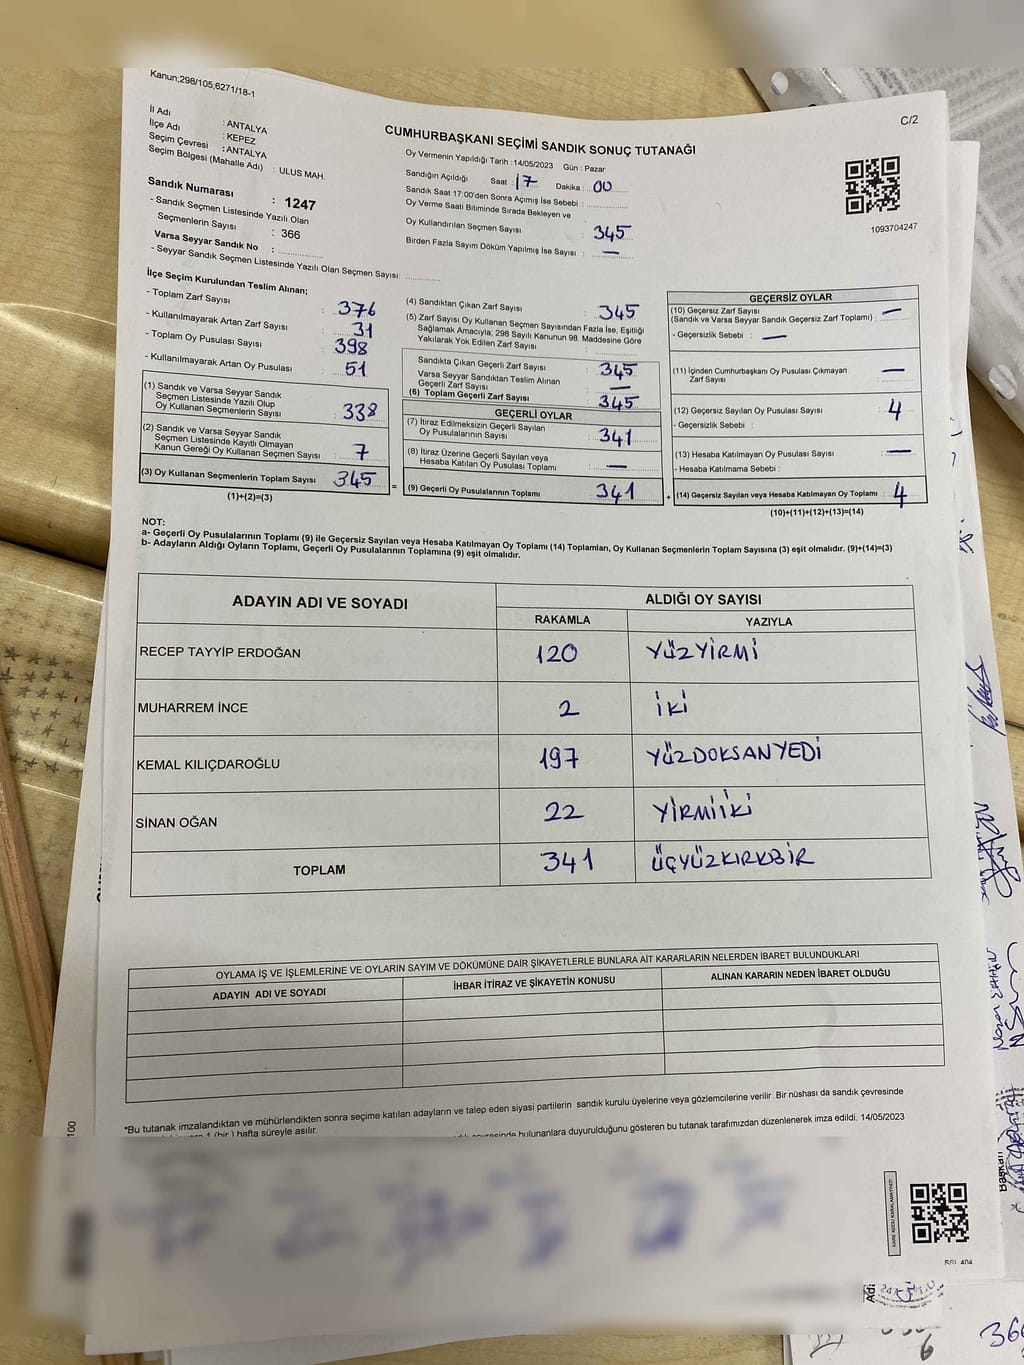 Kanun;298/105,6271/18-1
C/2
İl Adı : ANTALYA
İlçe Adı : KEPEZ
Seçim Çevresi : ANTALYA
Seçim Bölgesi (Mahalle Adı) : ULUS MAH.
CUMHURBAŞKANI SEÇİMİ SANDIK SONUÇ TUTANAĞI
Oy Vermenin Yapıldığı Tarih : 14/05/2023 Gün : Pazar
Sandığın Açıldığı Saat : 17 Dakika : 00
Sandık Saat 17:00'den Sonra Açımış İse Sebebi :
Oy Verme Saati Bitiminde Sırada Bekleyen ve
Oy Kullandırılan Seçmen Sayısı : 345
Birden Fazla Sayım Döküm Yapılmış İse Sayısı : —
1093704247
Sandık Numarası : 1247
- Sandık Seçmen Listesinde Yazılı Olan
Seçmenlerin Sayısı : 366
Varsa Seyyar Sandık No :
- Seyyar Sandık Seçmen Listesinde Yazılı Olan Seçmen Sayısı:
İlçe Seçim Kurulundan Teslim Alınan;
- Toplam Zarf Sayısı : 376
- Kullanılmayarak Artan Zarf Sayısı : 31
- Toplam Oy Pusulası Sayısı : 398
- Kullanılmayarak Artan Oy Pusulası : 51
(1) Sandık ve Varsa Seyyar Sandık
Seçmen Listesinde Yazılı Olup
Oy Kullanan Seçmenlerin Sayısı : 338
(2) Sandık ve Varsa Seyyar Sandık
Seçmen Listesinde Kayıtlı Olmayan
Kanun Gereği Oy Kullanan Seçmen Sayısı : 7
(3) Oy Kullanan Seçmenlerin Toplam Sayısı 345
(1)+(2)=(3)
(4) Sandıktan Çıkan Zarf Sayısı : 345
(5) Zarf Sayısı Oy Kullanan Seçmen Sayısından Fazla İse, Eşitliği
Sağlamak Amacıyla, 298 Sayılı Kanunun 98. Maddesine Göre
Yakılarak Yok Edilen Zarf Sayısı :
Sandıkta Çıkan Geçerli Zarf Sayısı : 345
Varsa Seyyar Sandıktan Teslim Alınan
Geçerli Zarf Sayısı : —
(6) Toplam Geçerli Zarf Sayısı : 345
GEÇERLİ OYLAR
(7) İtiraz Edilmeksizin Geçerli Sayılan
Oy Pusulalarının Sayısı : 341
(8) İtiraz Üzerine Geçerli Sayılan veya
Hesaba Katılan Oy Pusulası Toplamı : —
= (9) Geçerli Oy Pusulalarının Toplamı : 341
GEÇERSİZ OYLAR
(10) Geçersiz Zarf Sayısı
(Sandık ve Varsa Seyyar Sandık Geçersiz Zarf Toplamı) : —
- Geçersizlik Sebebi : —
(11) İçinden Cumhurbaşkanı Oy Pusulası Çıkmayan
Zarf Sayısı : —
(12) Geçersiz Sayılan Oy Pusulası Sayısı : 4
- Geçersizlik Sebebi :
(13) Hesaba Katılmayan Oy Pusulası Sayısı : —
- Hesaba Katılmama Sebebi :
+ (14) Geçersiz Sayılan veya Hesaba Katılmayan Oy Toplamı : 4
(10)+(11)+(12)+(13)=(14)
NOT:
a- Geçerli Oy Pusulalarının Toplamı (9) ile Geçersiz Sayılan veya Hesaba Katılmayan Oy Toplamı (14) Toplamları, Oy Kullanan Seçmenlerin Toplam Sayısına (3) eşit olmalıdır. (9)+(14)=(3)
b- Adayların Aldığı Oyların Toplamı, Geçerli Oy Pusulalarının Toplamına (9) eşit olmalıdır.
ADAYIN ADI VE SOYADI ALDIĞI OY SAYISI
RAKAMLA YAZIYLA
RECEP TAYYİP ERDOĞAN 120 YÜZYİRMİ
MUHARREM İNCE 2 İKİ
KEMAL KILIÇDAROĞLU 197 YÜZDOKSANYEDİ
SİNAN OĞAN 22 YİRMİİKİ
TOPLAM 341 ÜÇYÜZKIRKBİR
OYLAMA İŞ VE İŞLEMLERİNE VE OYLARIN SAYIM VE DÖKÜMÜNE DAİR ŞİKAYETLERLE BUNLARA AİT KARARLARIN NELERDEN İBARET BULUNDUKLARI
ADAYIN ADI VE SOYADI İHBAR İTİRAZ VE ŞİKAYETİN KONUSU ALINAN KARARIN NEDEN İBARET OLDUĞU
*Bu tutanak imzalandıktan ve mühürlendikten sonra seçime katılan adayların ve talep eden siyasi partilerin sandık kurulu üyelerine veya gözlemcilerine verilir .Bir nüshası da sandık çevresinde
1 (bir ) hafta süreyle asılır.
bulunanlara duyurulduğunu gösteren bu tutanak tarafımızdan düzenlenerek imza edildi. 14/05/2023
100
KARE KODU KARALAMAYINIZ!
Başkan
6
366